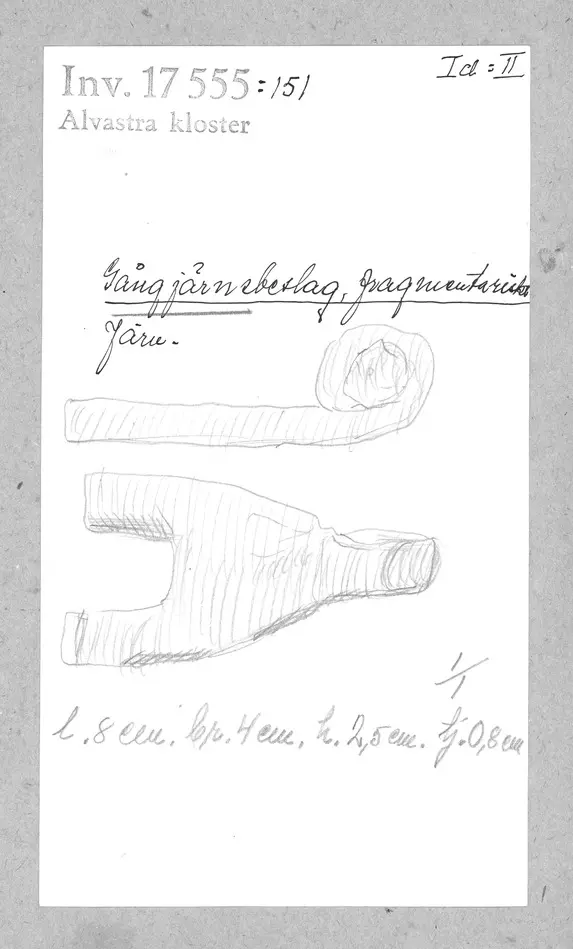 Inv. 17 555:151
Id=II
Alvastra kloster
Gångjärnsbeslag, fragmentariskt
Järn.
1/1
l. 8 cm. br. 4 cm. h. 2,5 cm. tj. 0,8 cm